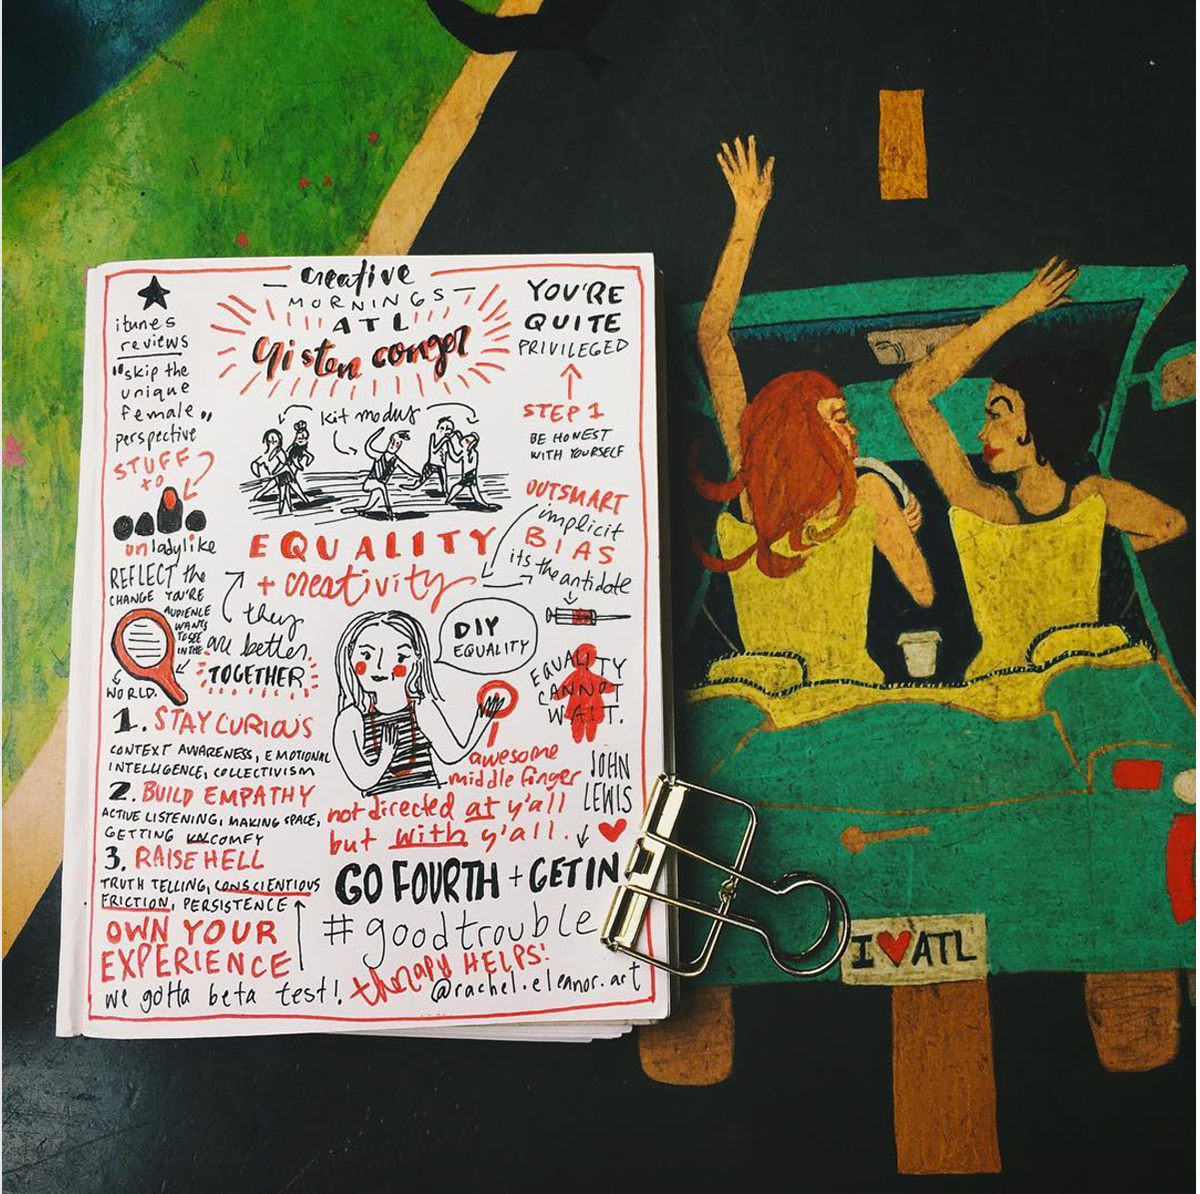 creative
MORNINGS
ATL
qisten conger
itunes
reviews
"skip the
unique
female"
perspective
STUFF
XO
unladylike
REFLECT the
CHANGE YOU'RE
AUDIENCE
WANTS
TO SEE
IN THE
WORLD.
kit modus
EQUALITY
+ creativity
they
are better
TOGETHER
DIY
EQUALITY
YOU'RE
QUITE
PRIVILEGED
STEP 1
BE HONEST
WITH YOURSELF
OUTSMART
implicit
BIAS
its the antidote
EQUALITY
CANNOT
WAIT.
JOHN
LEWIS
1. STAY CURIOUS
CONTEXT AWARENESS, EMOTIONAL
INTELLIGENCE, COLLECTIVISM
2. BUILD EMPATHY
ACTIVE LISTENING, MAKING SPACE,
GETTING UNCOMFY
3. RAISE HELL
TRUTH TELLING, CONSCIENTIOUS
FRICTION, PERSISTENCE
OWN YOUR
EXPERIENCE
we gotta beta test!
awesome
middle finger
not directed at y'all
but with y'all.
GO FOURTH + GET IN
#goodtrouble
therapy HELPS!
@rachel.eleanor.art
I ♥ ATL